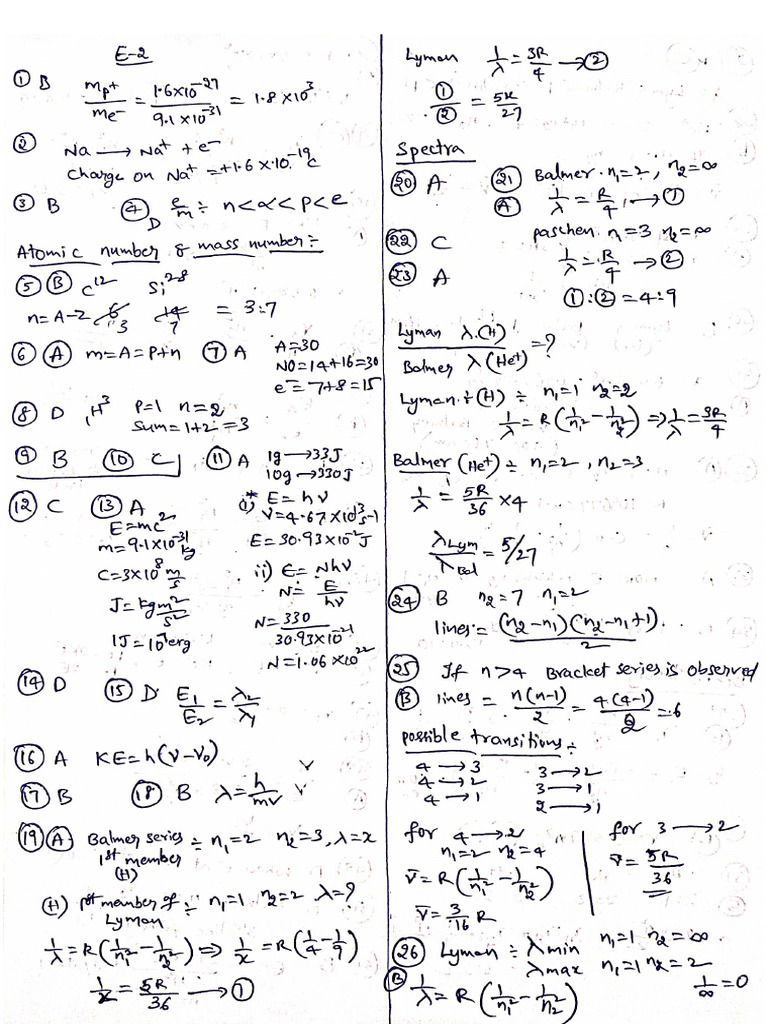 E-2
① B
mp+/me- = 1.6×10^-27/9.1×10^-31 = 1.8×10^3
② Na → Na+ + e-
Charge on Na+ = +1.6×10^-19 C
③ B ④ D e/m ÷ n<α<p<e
Atomic number & mass number ÷
⑤ Ⓑ C^12 Si^28
n=A-Z 6/3 14/7 = 3:7
⑥ Ⓐ m=A=p+n ⑦ A A=30
NO=14+16=30
e- = 7+8=15
⑧ D 1H^3 P=1 n=2
Sum=1+2=3
⑨ B ⑩ C ⑪ A 1g → 33J
10g → 330J
⑫ C ⑬ A
E=mc^2
m=9.1×10^-31 kg
C=3×10^8 m/s
J=kg m^2/s^2
1J=10^7 erg
* i) E=hν
ν=4.67×10^13 s^-1
E=30.93×10^-2 J
ii) E=Nhν
N=E/hν
N=330/30.93×10^-21
N=1.06×10^22
⑭ D ⑮ D E1/E2 = λ2/λ1
⑯ A KE=h(ν-ν0)
⑰ B ⑱ B λ=h/mv
⑲ Ⓐ Balmer series ÷ n1=2 n2=3, λ=x
1st member
(H)
(H) 1st member of ÷ n1=1 n2=2 λ=?
Lyman
1/λ=R(1/n1^2-1/n2^2) ⇒ 1/x=R(1/4-1/9)
1/x=5R/36 → ①
Lyman 1/λ=3R/4 → ②
①/② = 5x/27
Spectra
⑳ A ㉑ Balmer n1=2, n2=∞
Ⓐ 1/λ=R/4 → ①
㉒ C paschen n=3 n2=∞
㉓ A 1/λ=R/4 → ②
①:②=4:9
Lyman λ(H)/Balmer λ(He+) =?
Lyman ÷ (H) ÷ n1=1 n2=2
1/λ=R(1/n1^2-1/n2^2) ⇒ 1/λ=3R/4
Balmer (He+) ÷ n1=2, n2=3
1/λ=5R/36 ×4
λLym/λBal = 5/27
㉔ B n2=7 n1=2
lines=(n2-n1)(n2-n1+1)/2
㉕ If n>4 Bracket series is observed
Ⓑ lines = n(n-1)/2 = 4(4-1)/2 = 6
possible transitions ÷
4 → 3 3 → 2
4 → 2 3 → 1
4 → 1 2 → 1
for 4 → 2
n1=2 n2=4
ν̄=R(1/n1^2-1/n2^2)
ν̄=3/16 R
for 3 → 2
ν̄=5R/36
㉖ Lyman ÷ λmin n1=1 n2=∞
λmax n1=1 n2=2
Ⓑ 1/λ=R(1/n1^2-1/n2^2) 1/∞=0